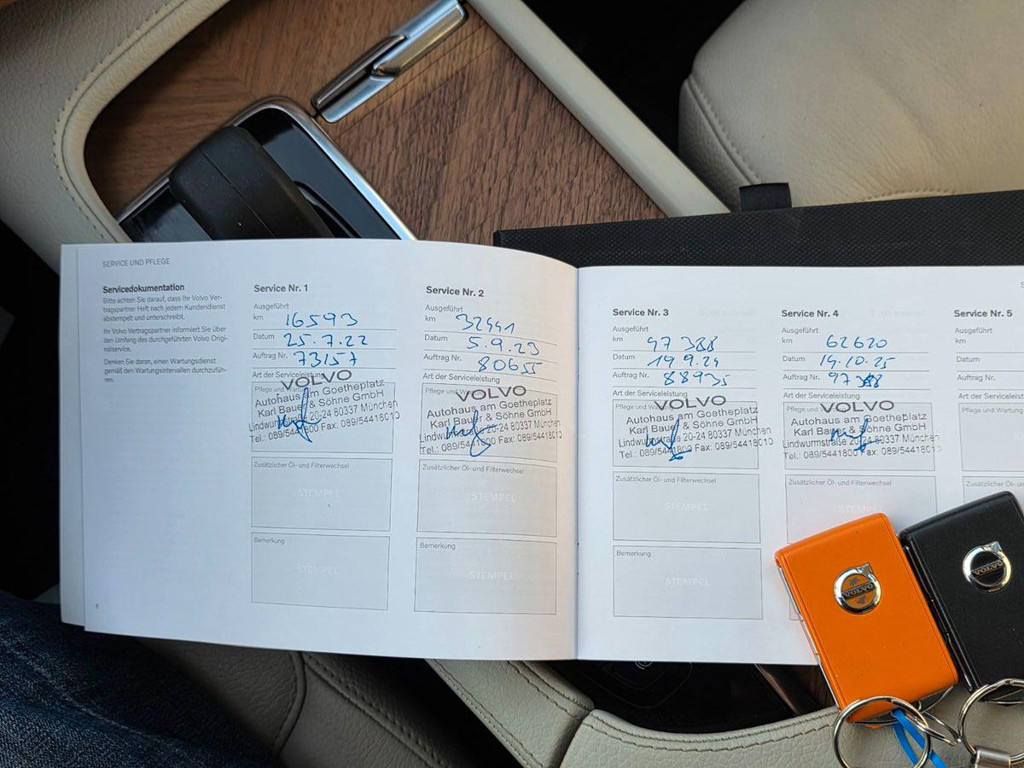 SERVICE UND PFLEGE
Servicedokumentation
Bitte achten Sie darauf, dass Ihr Volvo Ver-
tragspartner Heft nach jedem Kundendienst
abstempelt und unterschreibt.
Ihr Volvo Vertragspartner informiert Sie über
den Umfang des durchgeführten Volvo Origi-
nalservice.
Denken Sie daran, einen Wartungsdienst
gemäß den Wartungsintervallen durchzufüh-
ren.
Service Nr. 1
Ausgeführt
km 16593
Datum 25.7.22
Auftrag Nr. 73157
Art der Serviceleistung
VOLVO
Autohaus am Goetheplatz
Karl Bauer & Söhne GmbH
Lindwurmstraße 20-24 80337 München
Tel.: 089/5441800 Fax: 089/54418010
Zusätzlicher Öl- und Filterwechsel
STEMPEL
Bemerkung
STEMPEL
Service Nr. 2
Ausgeführt
km 32441
Datum 5.9.23
Auftrag Nr. 80655
Art der Serviceleistung
VOLVO
Autohaus am Goetheplatz
Karl Bauer & Söhne GmbH
Lindwurmstraße 20-24 80337 München
Tel.: 089/5441800 Fax: 089/54418010
Zusätzlicher Öl- und Filterwechsel
STEMPEL
Bemerkung
STEMPEL
Service Nr. 3
Ausgeführt
km 47388
Datum 19.9.24
Auftrag Nr. 88935
Art der Serviceleistung
VOLVO
Autohaus am Goetheplatz
Karl Bauer & Söhne GmbH
Lindwurmstraße 20-24 80337 München
Tel.: 089/5441800 Fax: 089/54418010
Zusätzlicher Öl- und Filterwechsel
STEMPEL
Bemerkung
STEMPEL
Service Nr. 4
Ausgeführt
km 62620
Datum 14.10.25
Auftrag Nr.
Art der Serviceleistung
VOLVO
Autohaus am Goetheplatz
Karl Bauer & Söhne GmbH
Lindwurmstraße 20-24 80337 München
Tel.: 089/5441800 Fax: 089/54418010
Zusätzlicher Öl- und Filterwechsel
STEMPEL
Service Nr. 5
Ausgeführt
km
Datum
Auftrag Nr.
Art der Serviceleistung
Pflege und Wartung
Zusätzlicher Öl-
VOLVO
VOLVO